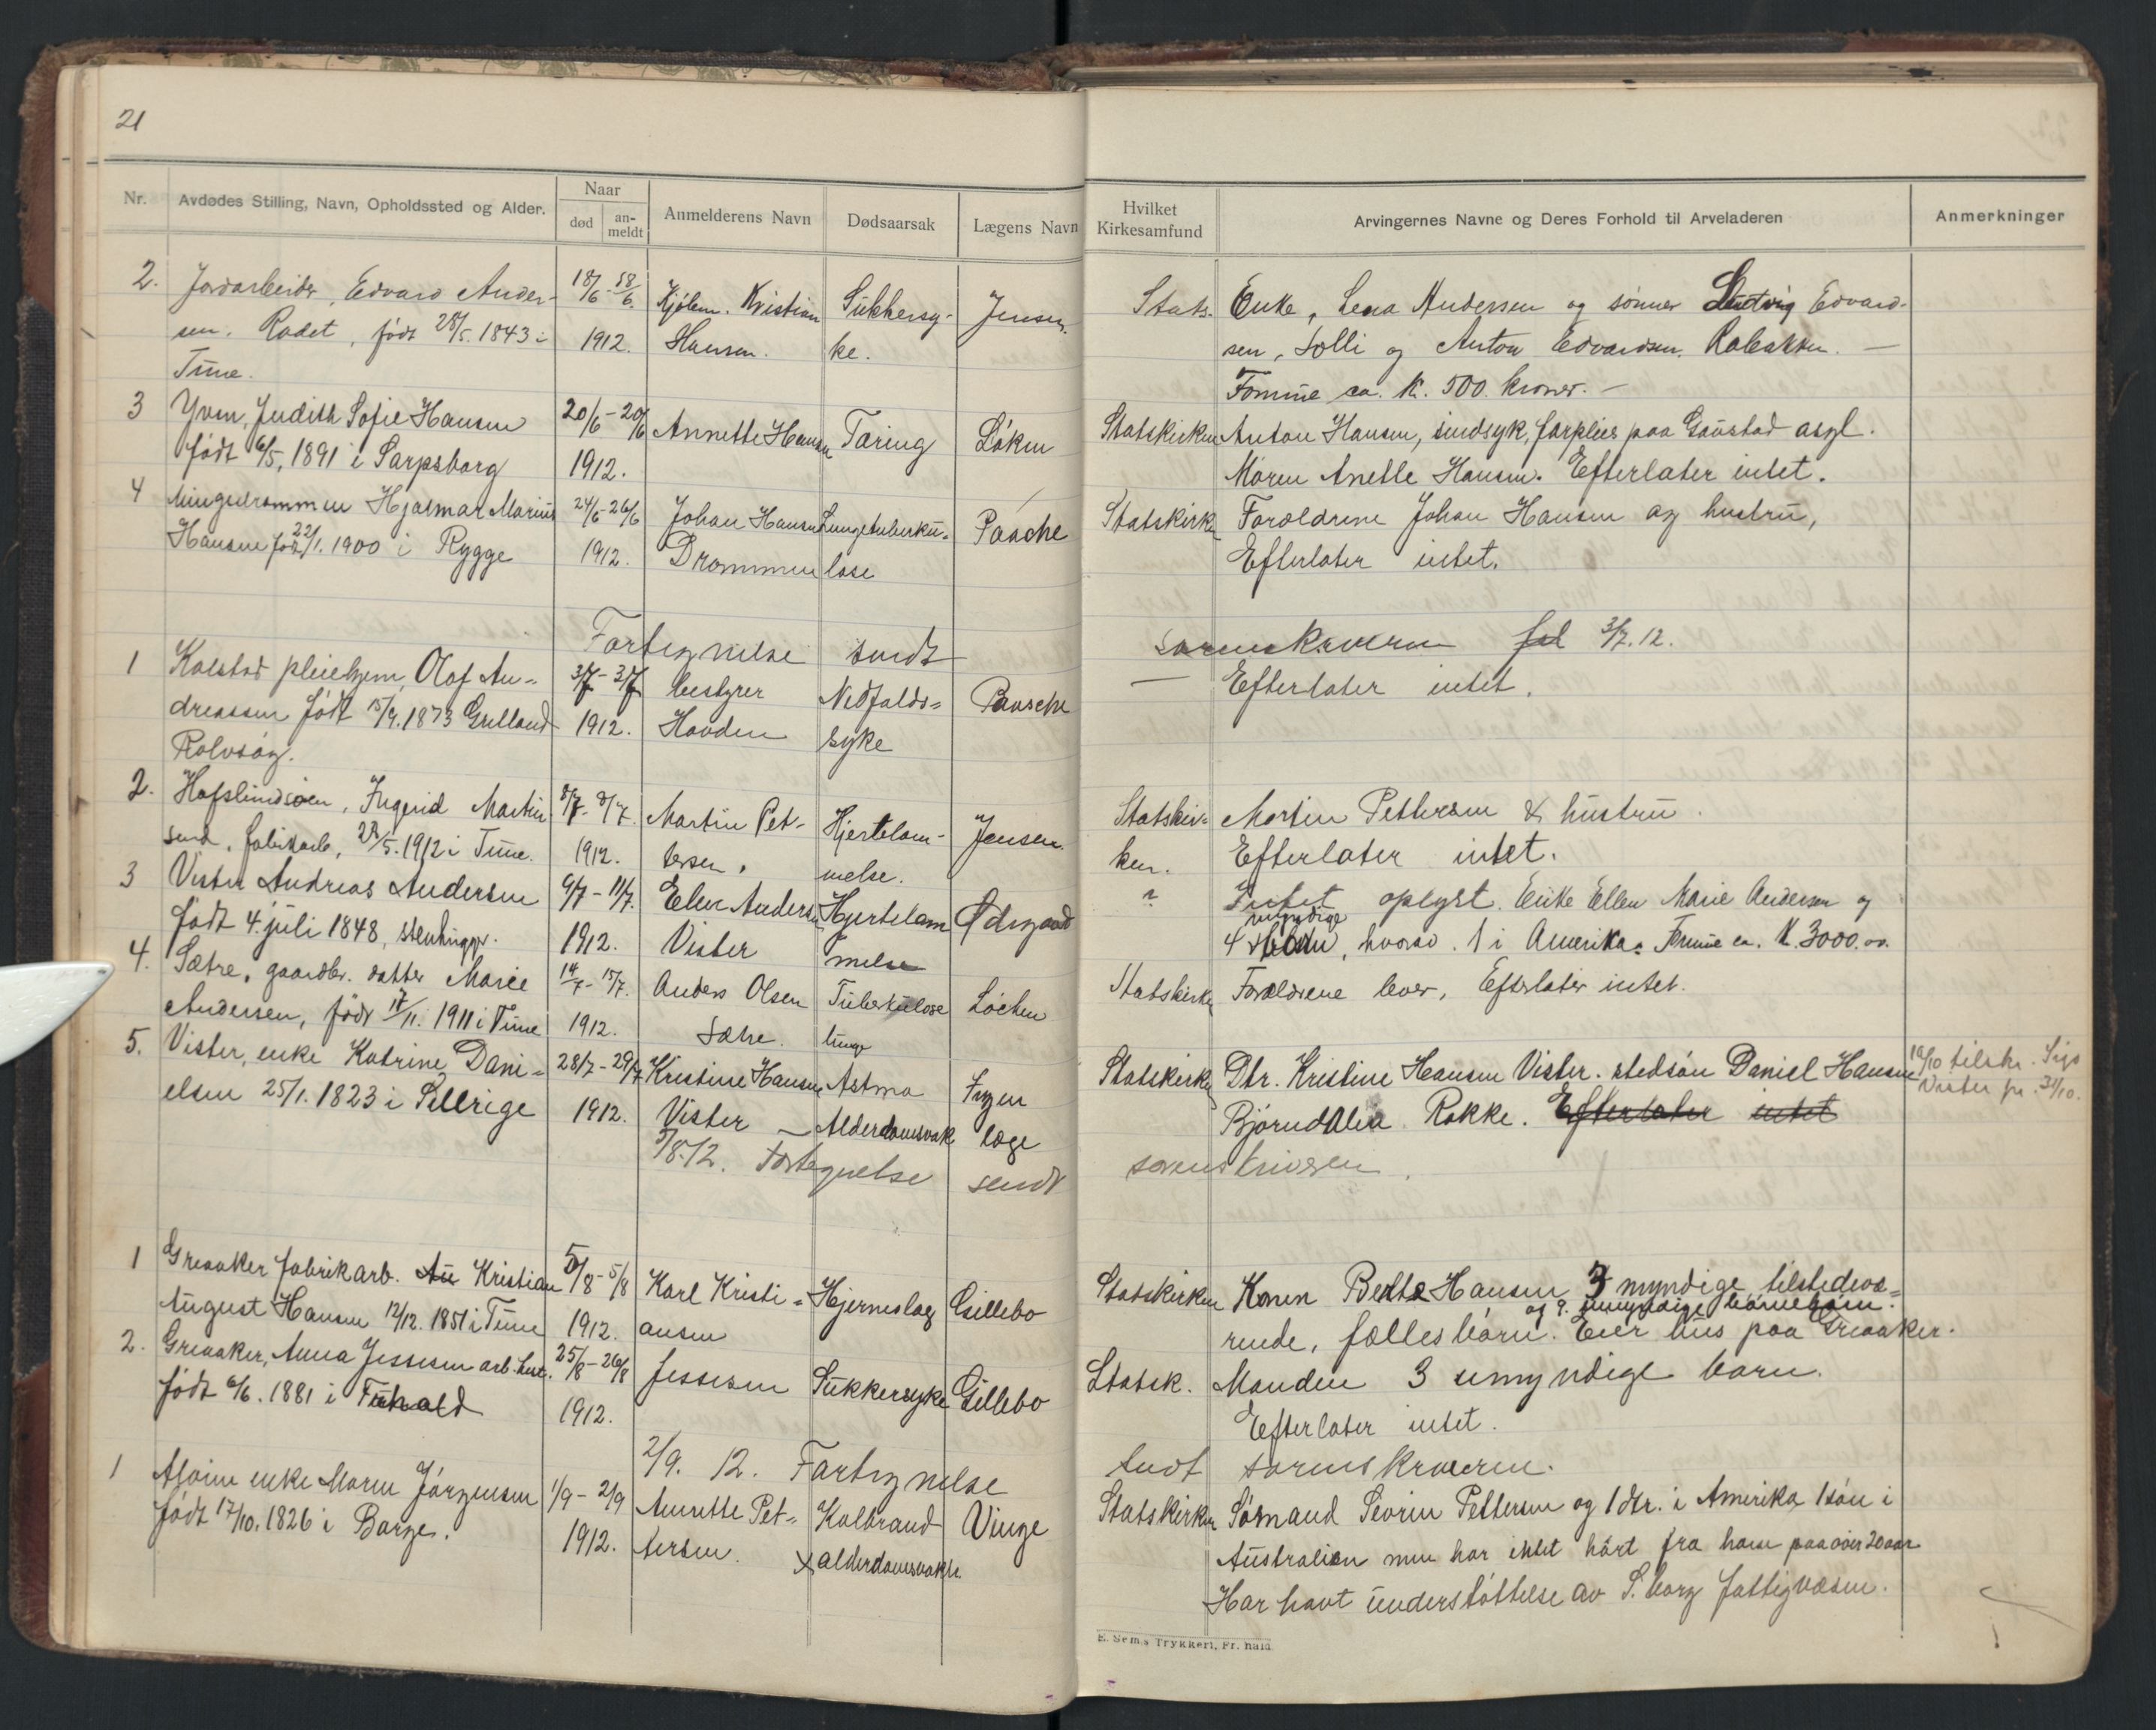 21
Nr. Avdødes Stilling, Navn, Opholdssted og Alder. Naar død an-meldt Anmelderens Navn Dødsaarsak Lægens Navn Hvilket Kirkesamfund Arvingernes Navne og Deres Forhold til Arveladeren Anmerkninger
2. Jordarbeider, Edvard Ander- 18/6 - 18/6. Kjølem. Kristian Sukkersy- Jensen. Stats. Enke, Lena Andersen og sønner Ludvig Edvard-
sen. Rødet, født 28/5. 1843 i 1912. Hansen. ke. sen, Solli og Anton Edvardsen, Rabakken. —
Tune. Formue ca. K. 500. kroner. —
3 Yven, Judith Sofie Hansen 20/6 - 20/6 Annette Hansen Tæring Løken Statskirken Anton Hansen, sindsyk, forpleies paa Gaustad asyl.
født 6/5, 1891 i Sarpsborg 1912. Moren Anette Hansen. Efterlater intet.
4 Mingedrammen Hjalmar Marius 24/6 - 26/6 Johan Hansen Lungetuberku- Paasche Statskirken Forældrene Johan Hansen og hustru,
Hansen født 22/1. 1900 i Rygge 1912. Drammen lose Efterlater intet.
Fortegnelse sendt sorenskriveren fol 3/7. 12.
1 Kalstad pleiehjem, Olaf An- 3/7 - 3/7 bestyrer Nedfalds- Paasche — Efterlater intet.
dreassen født 15/9. 1873 Grelland 1912. Hovden syke
Rolvsøy.
2. Hafslundsøen, Ingerid Martin 8/7 - 9/7. Martin Pet- Hjertelam- Jensen. Statskir- Martin Pettersen & hustru.
send, fabrikarb, 28/5. 1912 i Tune. 1912. tersen, melse. ken. Efterlater intet.
3 Vister Andreas Andersen 9/7 - 11/7. Elen Andersen Hjertelam Ødegaard ? Intet oplyst. Enke Ellen Marie Andersen og
født 4. juli 1848, stenhugger. 1912. Vister melse 4 myndige børn, hvorav 1 i Amerika. Formue ca. K. 3000.00.
4. Sætre, gaardbr. datter Marie 14/7 - 15/7. Anders Olsen Tuberkulose Løchen Statskirken Forældrene lever, Efterlater intet.
Andersen, født 17/11. 1911 i Tune 1912. Sætre. lunge
5. Vister, enke Katrine Dani- 28/7 - 29/7 Kristine Hansen Astma Ingen Statskirken Dtr. Kristine Hansen Vister. stedsøn Daniel Hansen 10/10 tilskr.
elsen 25/1. 1823 i Sellrige 1912. Vister — Alderdomsvak læge Bjørndalen Rokke. Efterlater intet Vister pr. 31/10.
7/8-12. Fortegnelse sendt sorenskriveren.
1 Greaaker fabrikarb. Au Kristian 5/8 - 5/8 Karl Kristi- Hjerneslag Gillebo Statskirken Konen Berthe Hansen 3 myndige, tilstedevæ-
August Hansen 12/12. 1851 i Tune 1912. ansen rende, fællesbørn. og 9. umyndige barnebørn. Eier hus paa Greaaker.
2. Greaaker, Anna Jessesen arb. hust. 25/8 - 26/8 Jessesen Sukkersyke Gillebo Statsk. Manden 3 umyndige barn.
født 6/6. 1881 i Frhald 1912. Efterlater intet.
2/9. 12. Fortegnelse sendt sorenskriveren.
1 Moine enke Maren Jørgensen 1/9 - 2/9 Annette Pet- Kolbrand Vinge Statskirken Sømand Severin Pettersen og 1 dtr. i Amerika 1 søn i
født 17/10. 1826 i Borge. 1912. tersen. x alderdomsvakh. Australien men har ikket hørt fra ham paa over 20 aar
Har havt understøttelse av S.borg fattigvæsen.
E. Sems Trykkeri, Fr.hald.